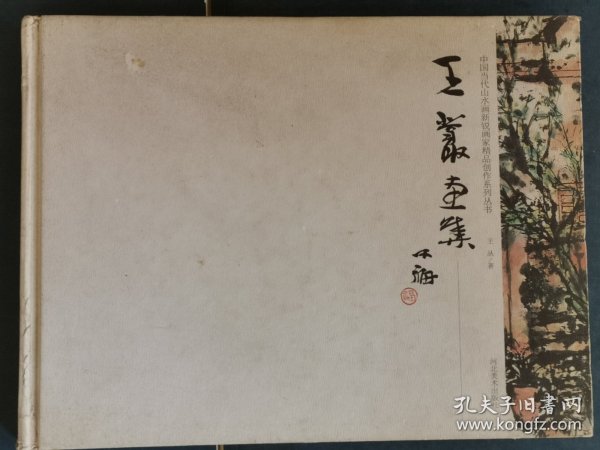 王丛画集
中国当代山水画新锐画家精品创作系列丛书
王丛 著
河北美术出
孔夫子旧书网
www.kongfz.com